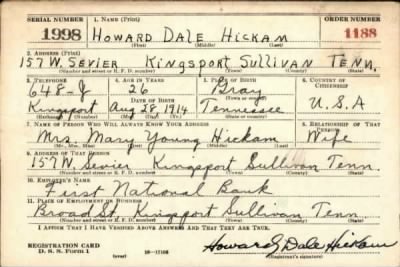 SERIAL NUMBER 1. NAME (Print) ORDER NUMBER
1998 HOWARD DALE HICKAM 1188
(First) (Middle) (Last)
2. ADDRESS (Print)
157 W. SEVIER KINGSPORT SULLIVAN TENN.
3. TELEPHONE 4. AGE IN YEARS 5. PLACE OF BIRTH 6. COUNTRY OF CITIZENSHIP
648-J 26 Gray
Kingsport DATE OF BIRTH Tennessee U.S.A
Aug 28 1914
(Exchange) (Number) (Mo.) (Day) (Yr.) (State or country)
7. NAME OF PERSON WHO WILL ALWAYS KNOW YOUR ADDRESS 8. RELATIONSHIP OF THAT PERSON
Mrs. Mary Young Hickam Wife
(Mr., Mrs., Miss) (First) (Middle) (Last)
9. ADDRESS OF THAT PERSON
157 W. Sevier Kingsport Sullivan Tenn.
(Number and street or R. F. D. number) (Town) (County) (State)
10. EMPLOYER'S NAME
First National Bank
11. PLACE OF EMPLOYMENT OR BUSINESS
Broad St Kingsport Sullivan Tenn
(Number and street or R. F. D. number) (Town) (County) (State)
I AFFIRM THAT I HAVE VERIFIED ABOVE ANSWERS AND THAT THEY ARE TRUE.
REGISTRATION CARD
D. S. S. Form 1 (over) Howard Dale Hickam
(Registrant's signature)